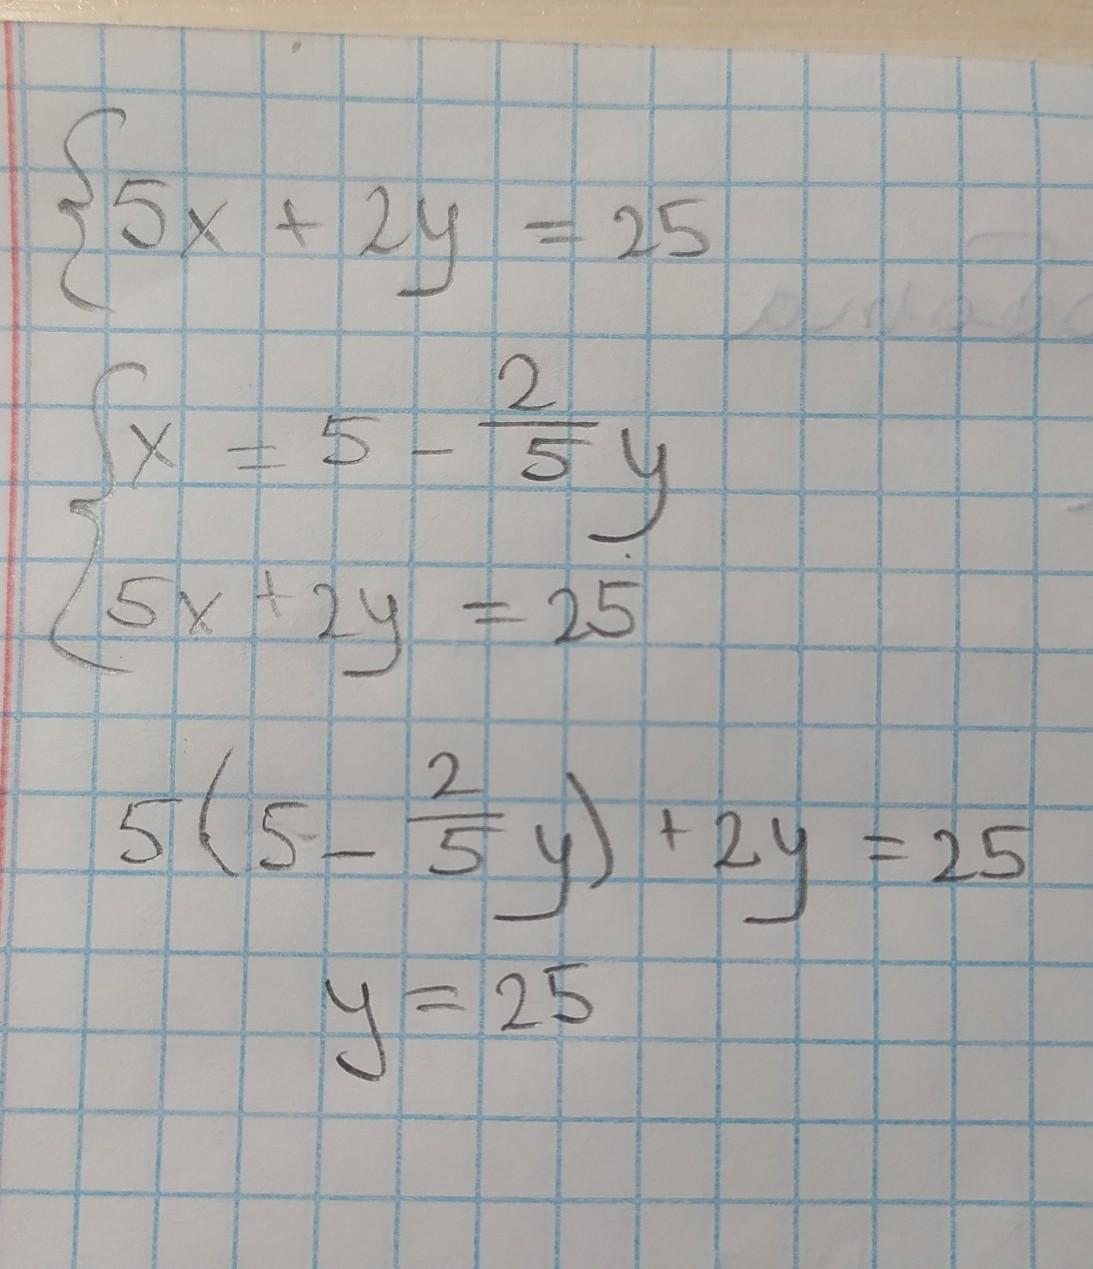 {5x + 2y = 25
{x = 5 - 2/5 y
5x + 2y = 25
5(5 - 2/5 y) + 2y = 25
y = 25